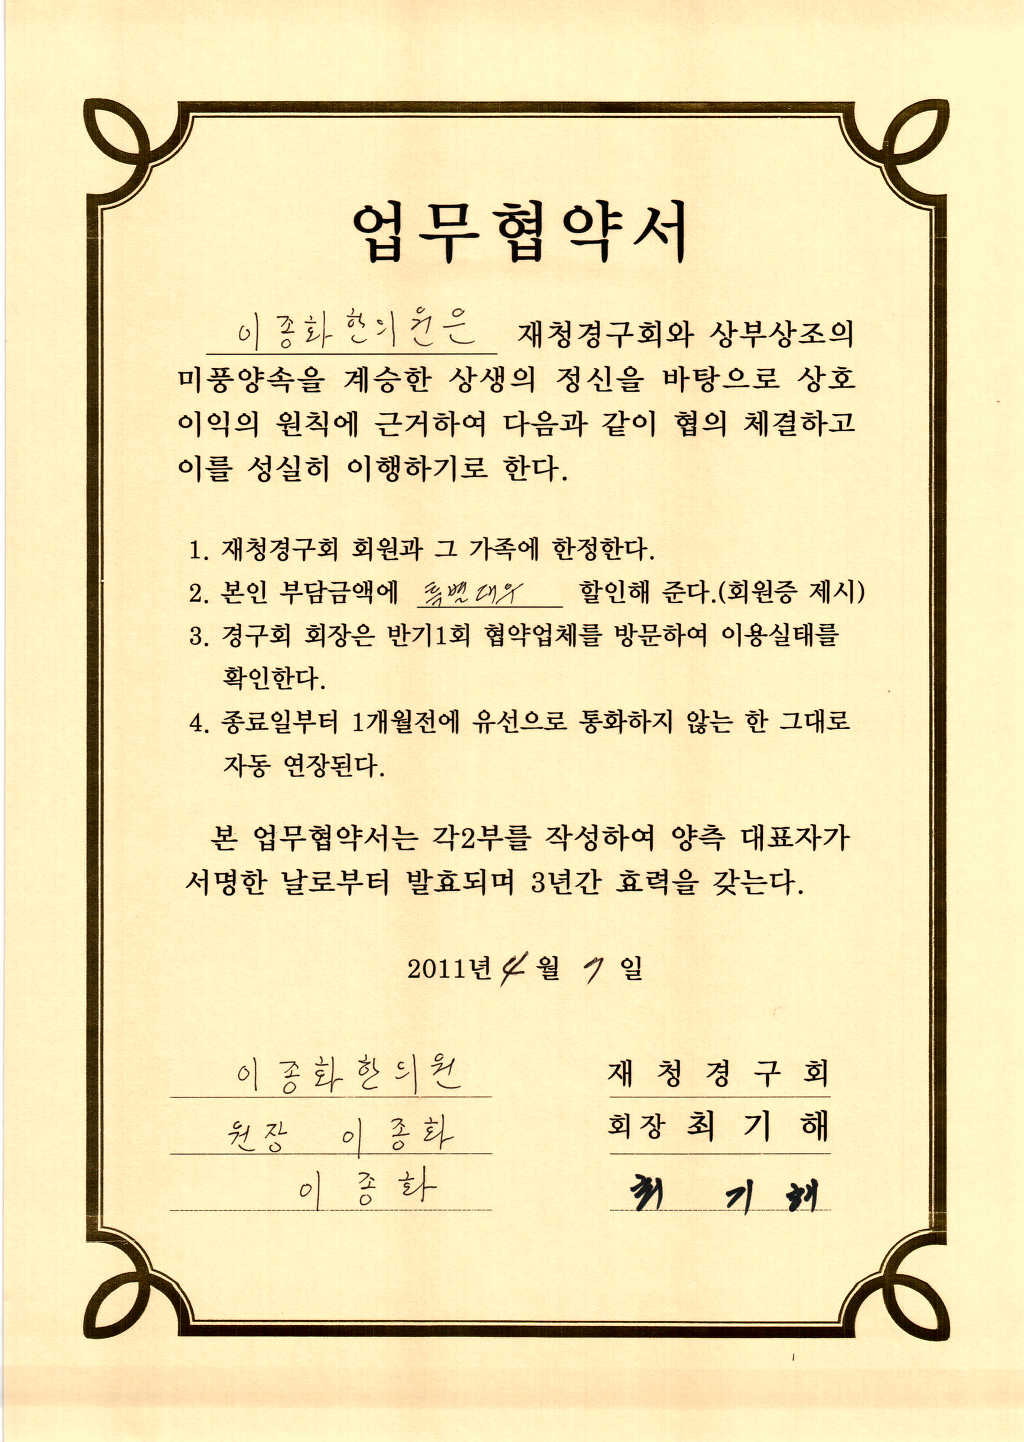 업무협약서
이종화한의원은 재청경구회와 상부상조의
미풍양속을 계승한 상생의 정신을 바탕으로 상호
이익의 원칙에 근거하여 다음과 같이 협의 체결하고
이를 성실히 이행하기로 한다.
1. 재청경구회 회원과 그 가족에 한정한다.
2. 본인 부담금액에 특별대우 할인해 준다.(회원증 제시)
3. 경구회 회장은 반기1회 협약업체를 방문하여 이용실태를
확인한다.
4. 종료일부터 1개월전에 유선으로 통화하지 않는 한 그대로
자동 연장된다.
본 업무협약서는 각2부를 작성하여 양측 대표자가
서명한 날로부터 발효되며 3년간 효력을 갖는다.
2011년 4월 7일
이종화한의원
원장 이종화
이종화
재청경구회
회장 최기해
최기해